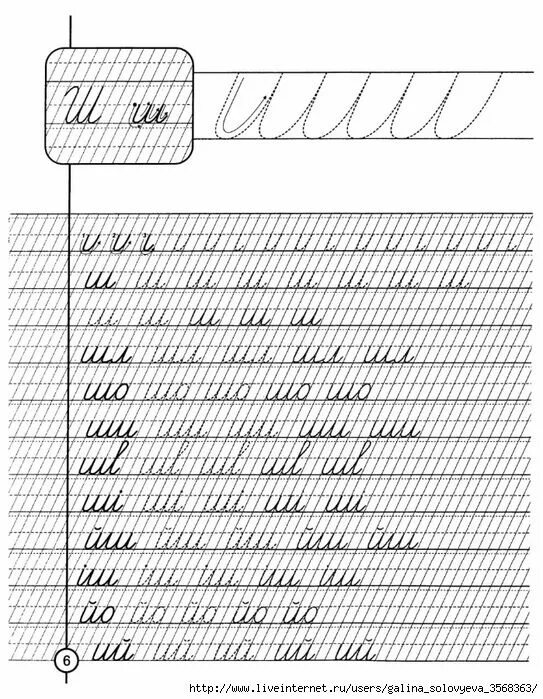 Ш ш
ш ш ш ш ш ш ш ш
ш ш ш ш ш
шл шл шл шл шл
шо шо шо шо шо
ши ши ши ши ши
шв шв шв шв шв
ші ші ші ші ші
йш йш йш йш йш
іш іш іш іш іш
йо йо йо йо йо
ий ий ий ий ий
6
http://www.liveinternet.ru/users/galina_solovyeva_3568363/